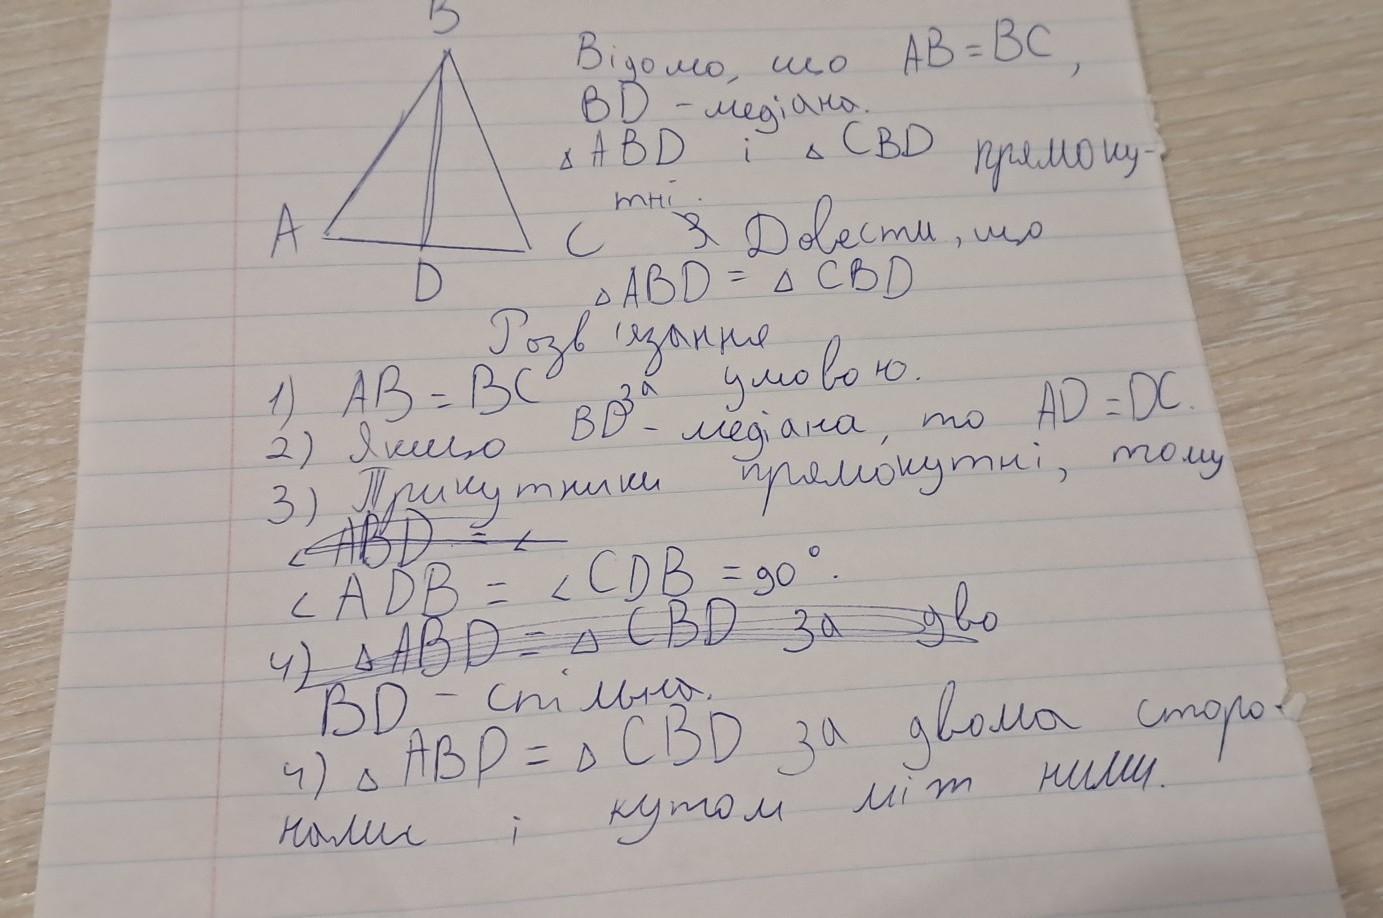 B
Відомо, що AB = BC,
BD - медіана.
△ABD і △CBD прямоку-
тні.
A
C
Довести, що
D
△ABD = △CBD
Розв'язання
1) AB = BC за умовою.
2) Якщо BD - медіана, то AD = DC.
3) Трикутники прямокутні, тому
∠ABD = ∠
∠ADB = ∠CDB = 90°.
4) △ABD = △CBD за дво
BD - спільна.
4) △ABD = △CBD за двома сторо-
нами і кутом міт ними.